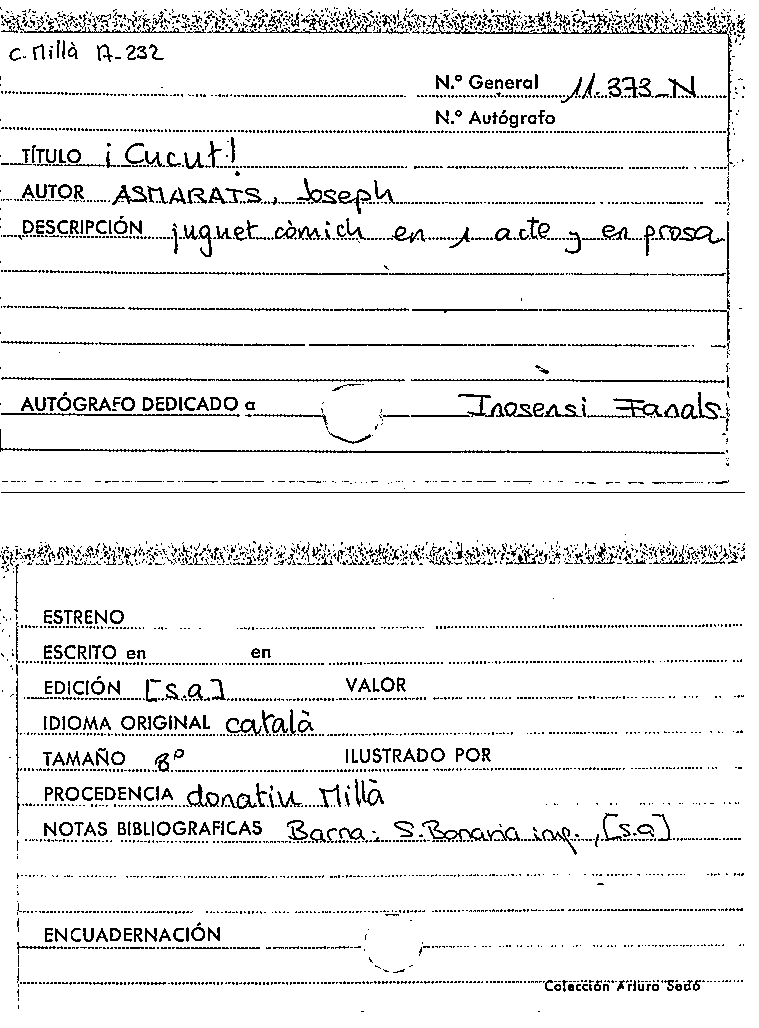 C. Millà A-232
N.º General 11.373-N
N.º Autógrafo
TÍTULO ¡Cucut!
AUTOR ASMARATS, Joseph
DESCRIPCIÓN juguet còmich en 1 acte y en prosa
AUTÓGRAFO DEDICADO a Inosensi Fanals
ESTRENO
ESCRITO en en
EDICIÓN [s.a] VALOR
IDIOMA ORIGINAL català
TAMAÑO 8º ILUSTRADO POR
PROCEDENCIA donatiu Millà
NOTAS BIBLIOGRAFICAS Barna: S. Bonavia imp., [s.a]
ENCUADERNACIÓN
Colección Arturo Sedó